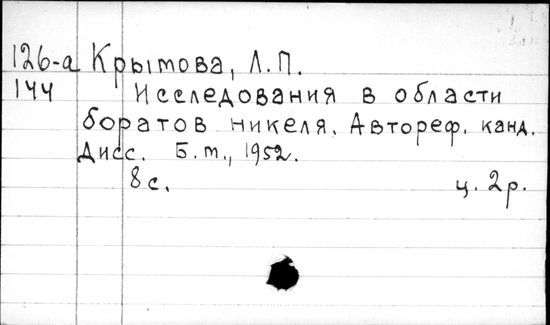 126-а Крымова, Л.П.
144 Исследования в области
боратов никеля. Автореф. канд.
Дисс. Б.т., 1952.
8с. ц. 2р.